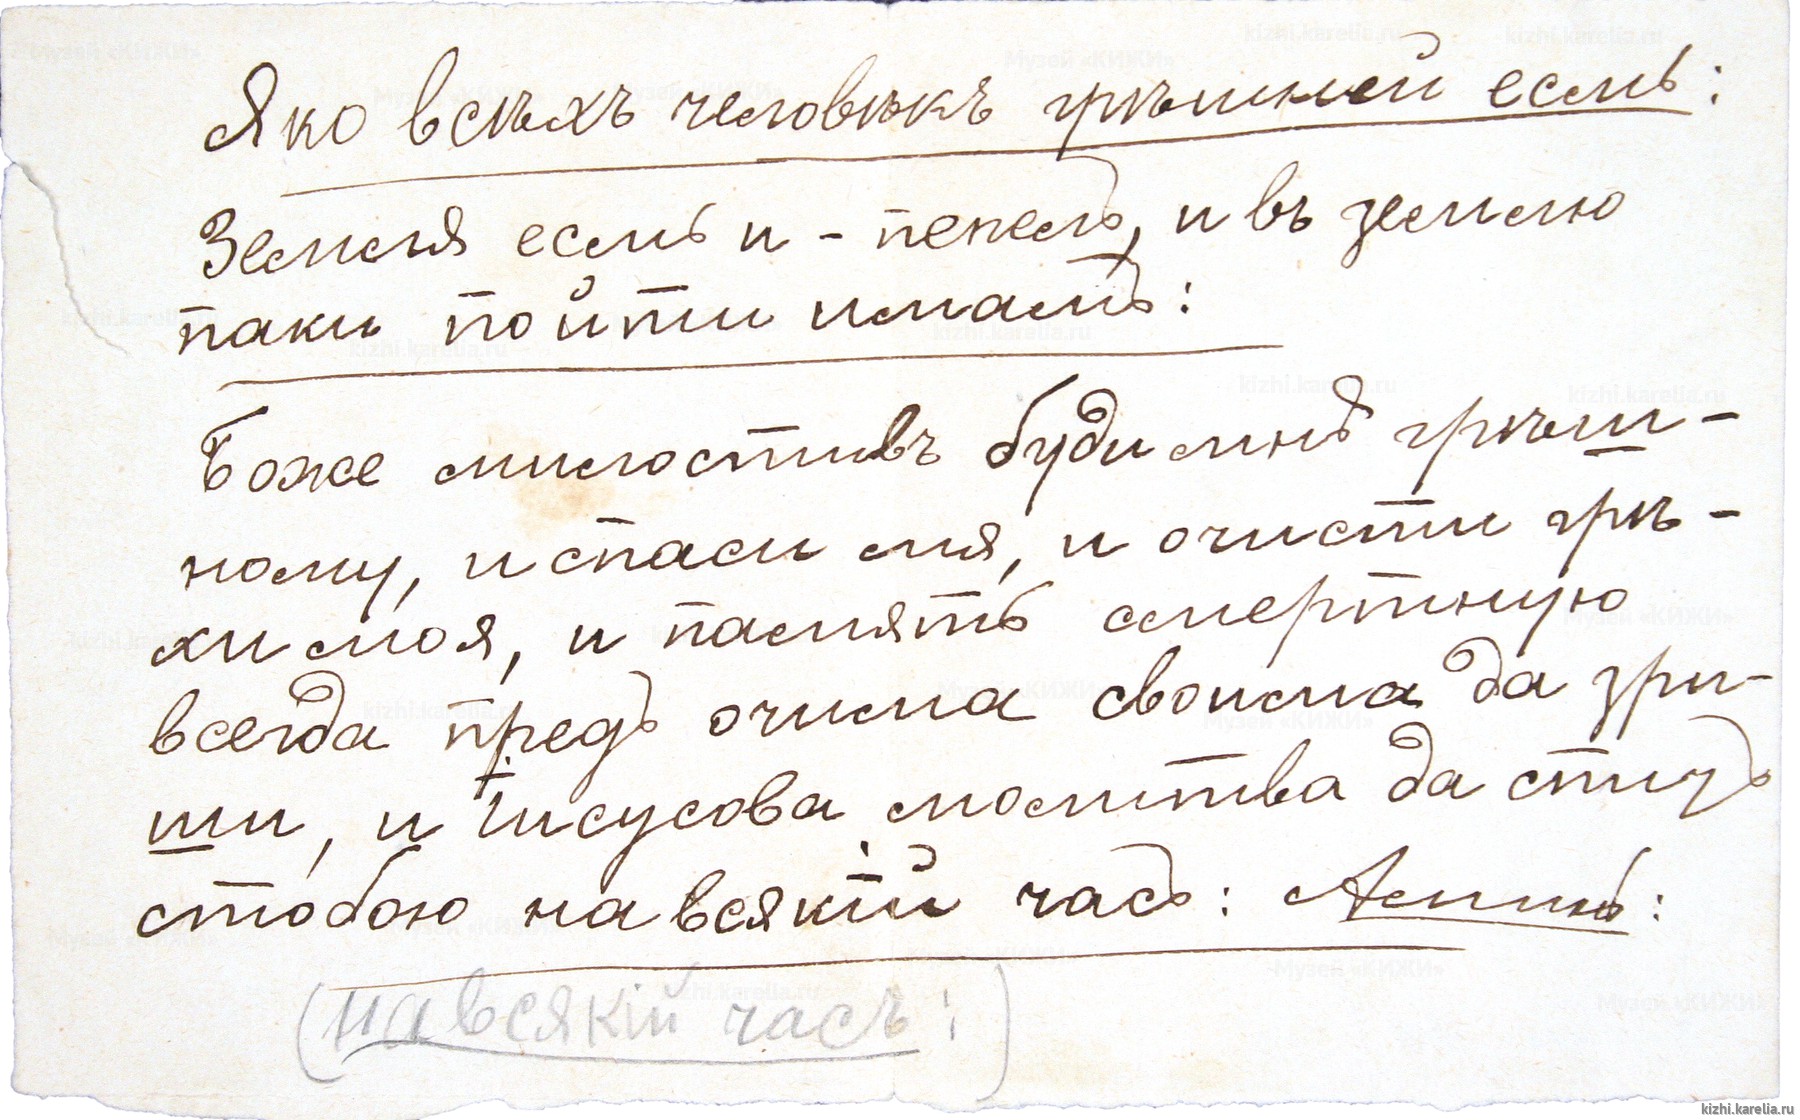 Яко всѣхъ человѣкъ грѣшнѣй есмь:
Земля есмь и - пепелъ, и въ землю
паки пойти имамъ:
Боже милостивъ буди мнѣ грѣш-
ному, и спаси мя, и очисти грѣ-
хи моя, и память смертную
всегда предъ очима своима да зри-
ши, и Іисусова молитва да стизъ
стобою на всякій часъ: Аминь:
(на всякій часъ:)
kizhi.karelia.ru